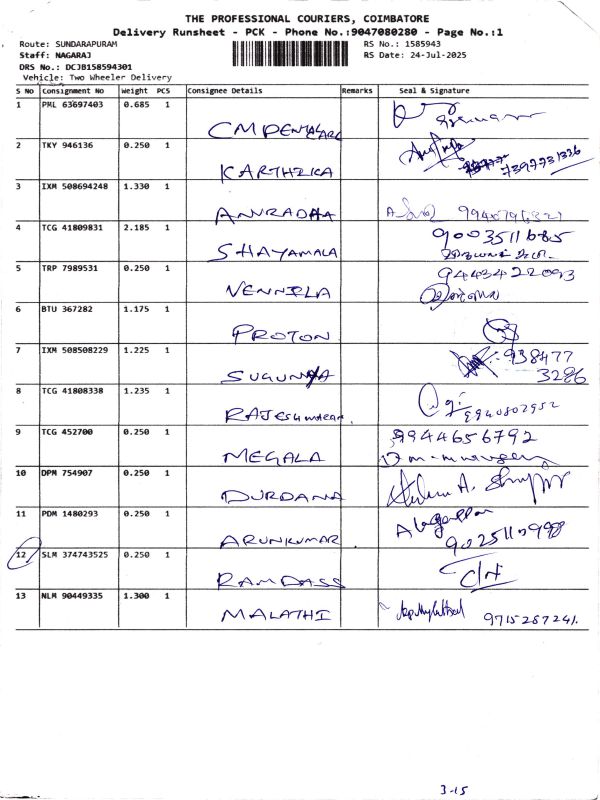 THE PROFESSIONAL COURIERS, COIMBATORE
Delivery Runsheet - PCK - Phone No.:9047080280 - Page No.:1
Route: SUNDARAPURAM RS No.: 1585943
Staff: NAGARAJ RS Date: 24-Jul-2025
DRS No.: DCJB158594301
Vehicle: Two Wheeler Delivery
S No Consignment No Weight PCS Consignee Details Remarks Seal & Signature
1 PML 63697403 0.685 1
CM DENTAL
2 TKY 946136 0.250 1
KARTHIKA 7397731336
3 IXM 508694248 1.330 1
ANURADHA
4 TCG 41809831 2.185 1
SHAYAMALA
5 TRP 7989531 0.250 1 9443422093
VENNILA
6 BTU 367282 1.175 1
PROTON
7 IXM 508508229 1.225 1 938477
SUGUNA 3286
8 TCG 41808338 1.235 1
9940802952
9 TCG 452700 0.250 1 9944656792
MEGALA
10 DPM 754907 0.250 1
DURDANA
11 PDM 1480293 0.250 1
ARUNKUMAR
12 SLM 374743525 0.250 1
RAMDASS
13 NLM 90449335 1.300 1
MALATHI 9715287241.
3-15